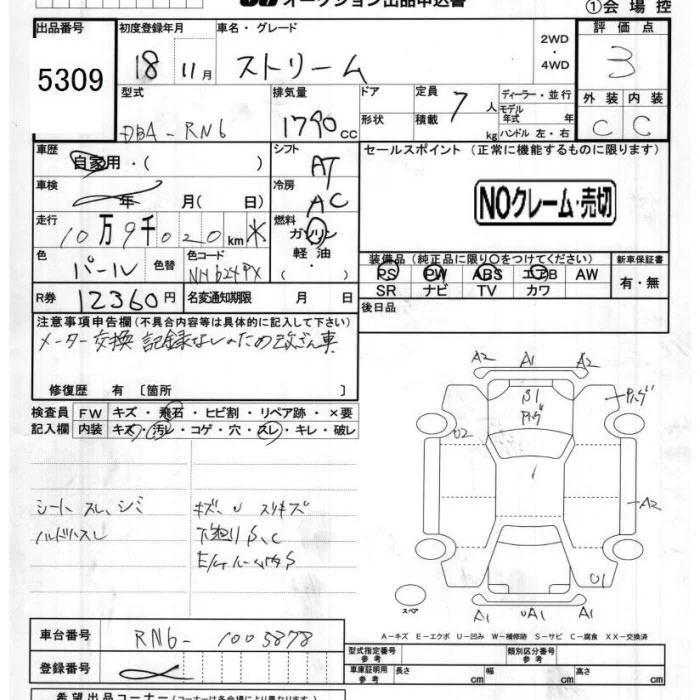 オークション出品申込書
①会場控
出品番号 初度登録年月 車名・グレード 2WD・4WD 評価点
5309 18 11月 ストリーム 3
型式 排気量 ドア 定員 7人 ディーラー・並行 外装 内装
DBA-RN6 1790cc 形状 積載 kg モデル年式 年 ハンドル 左・右 C C
車歴 自家用・( ) シフト AT セールスポイント (正常に機能するものに限ります)
車検 年 月(日) 冷房 AC NOクレーム・売切
走行 10万9千020km 燃料 ガソリン
軽油・( )
色 パール 色替 色コード NH624PX
装備品 (純正品に限り○をつけてください) 新車保証書
PS PW ABS エアB AW 有・無
SR ナビ TV カワ
R券 12360円 名変通知期限 月 日 後日品
注意事項申告欄 (不具合内容等は具体的に記入して下さい)
メーター交換 記録なしのため改ざん車
修復歴 有 [箇所 ]
検査員 FW キズ・飛石・ヒビ割・リペア跡・×要
記入欄 内装 キズ・汚レ・コゲ・穴・スレ・キレ・破レ
シート スレ、シミ キズ、U スリキズ
ハンドルスレ 下廻りS、C
A2 A1 A2
B1
U2
A2
U1
スペア
A1 UA1 A1
A-キズ E-エクボ U-凹み W-補修跡 S-サビ C-腐食 XX-交換済
車台番号 RN6-1003878
型式指定番号 参考 類別区分番号 参考
登録番号 車庫証明用 参考 長さ cm 幅 cm 高さ cm
希望出品コーナー